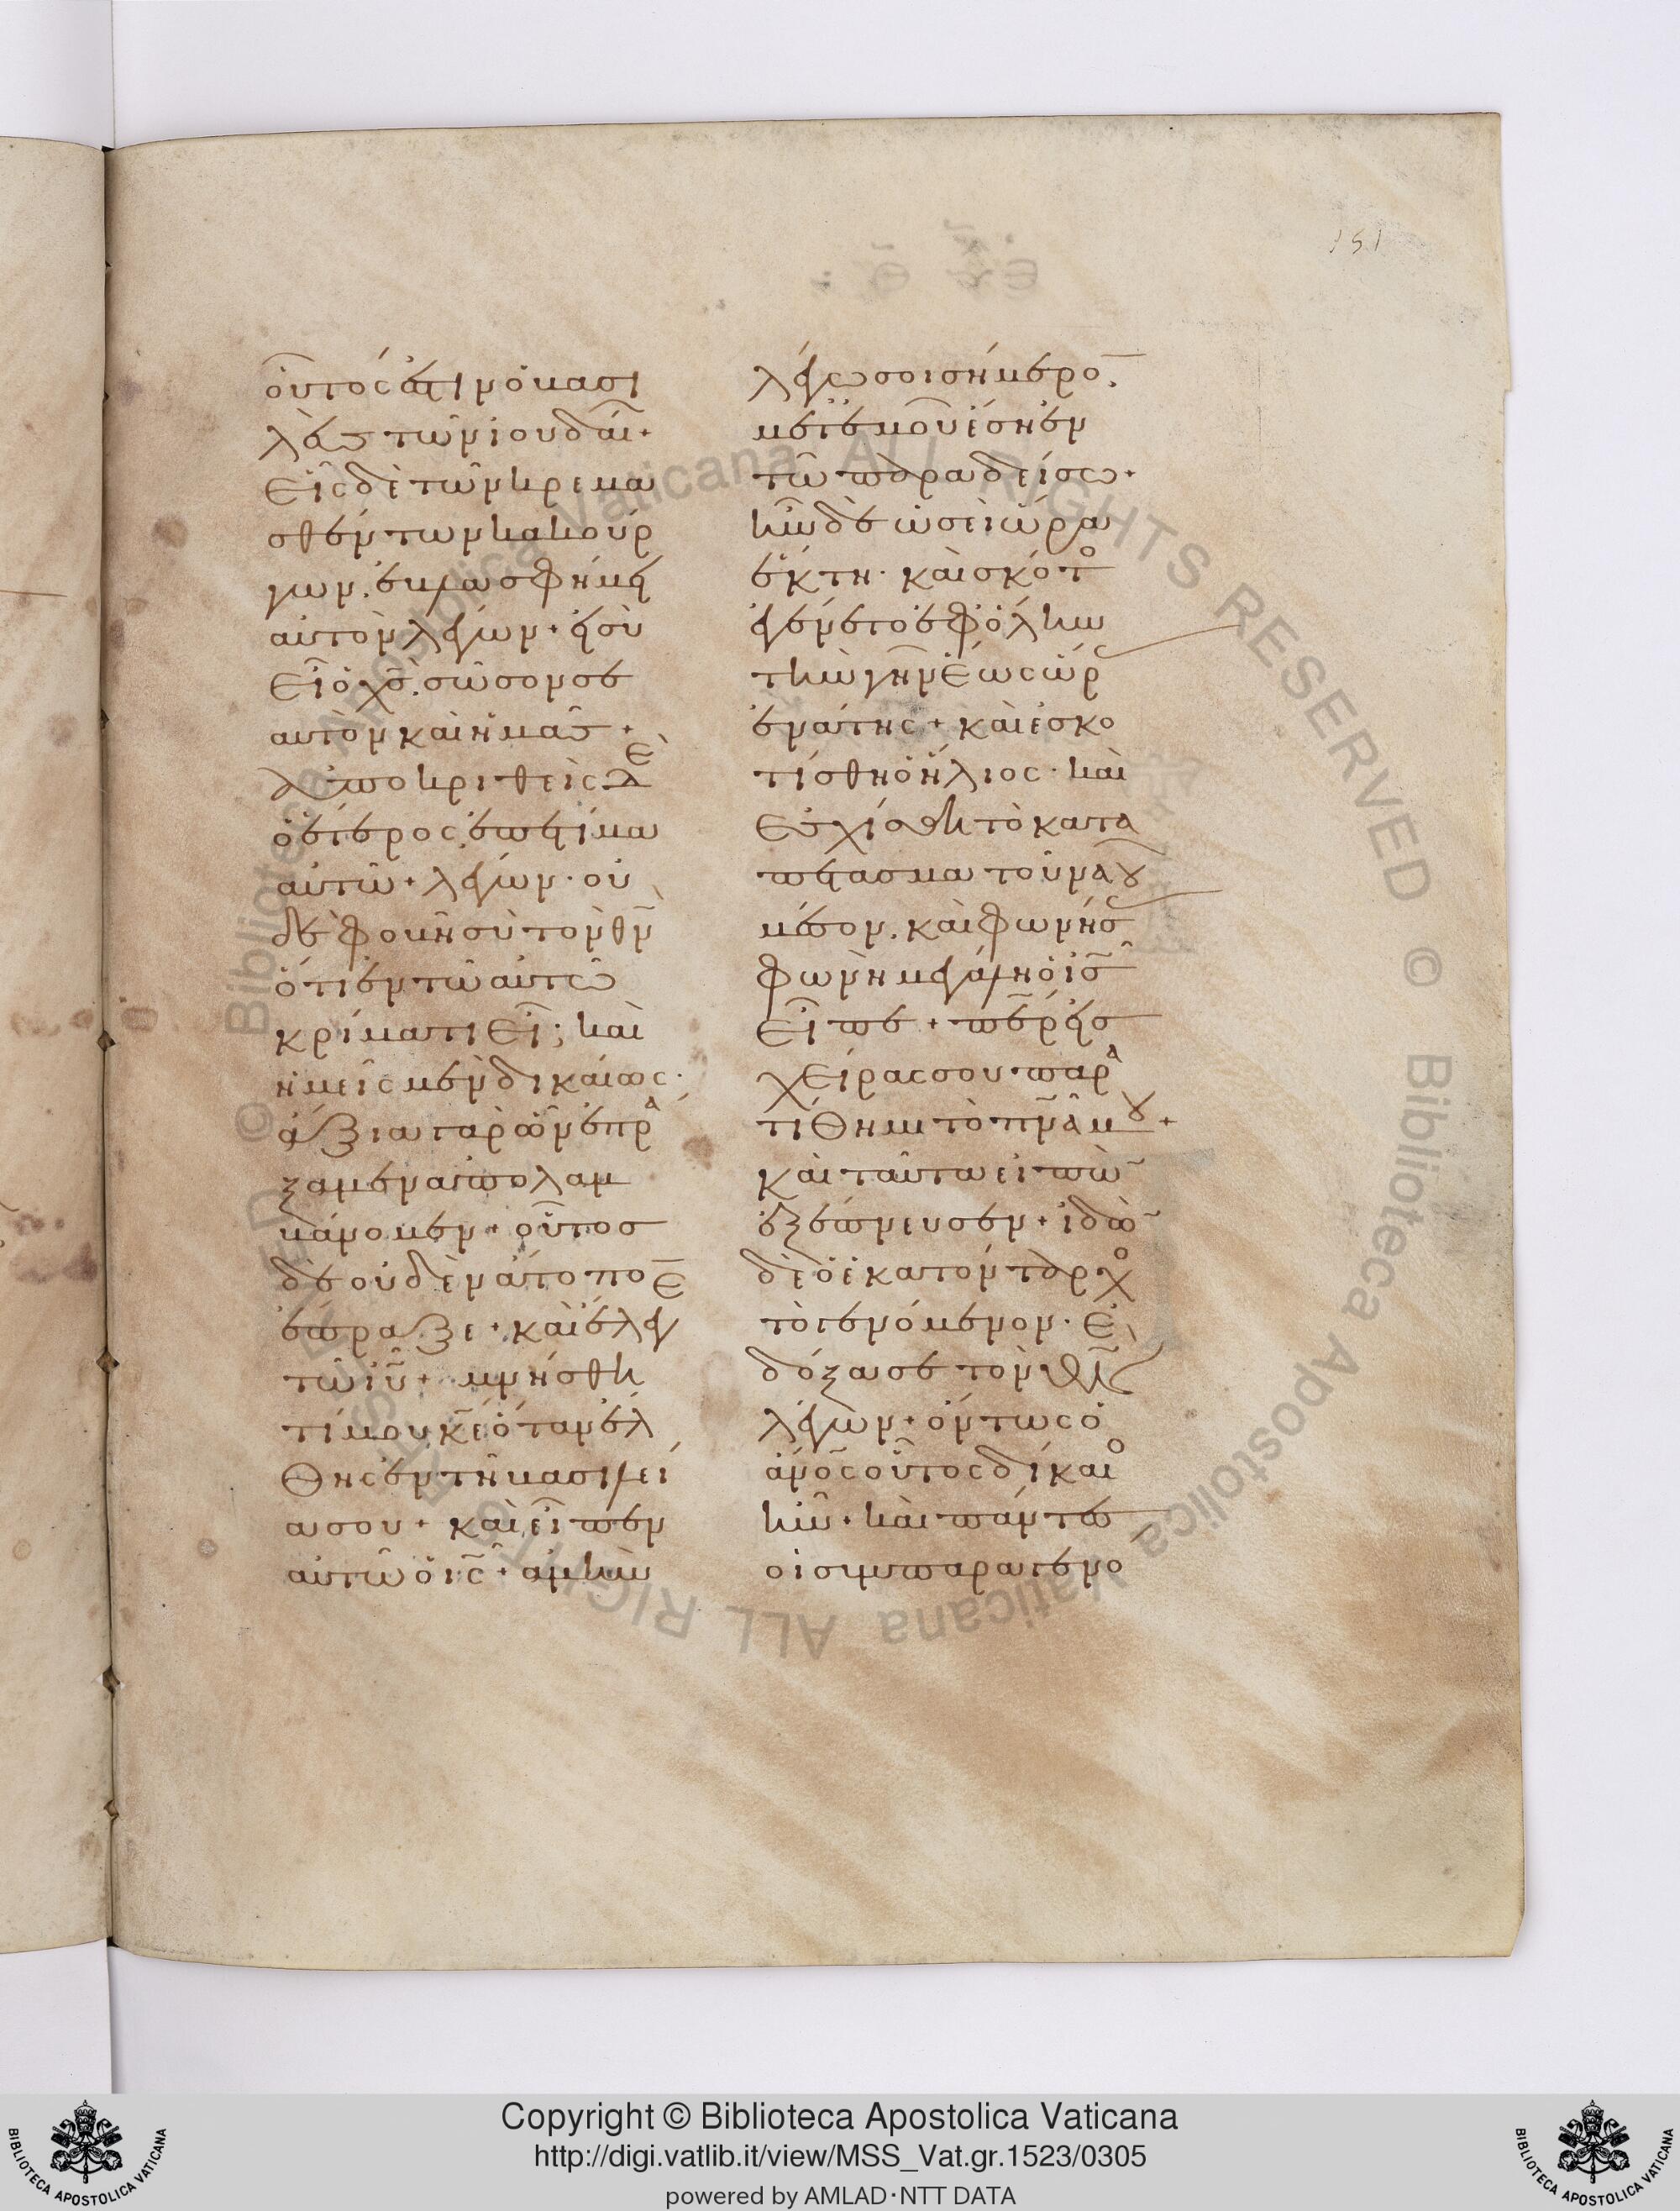 151
οὗτός ἐστιν ὁ βασι
λεὺς τῶν ἰουδαί·
Εἷς δὲ τῶν κρεμα
σθέντων κακούρ
γων. ἐβλασφήμει
αὐτὸν λέγων· εἰ σὺ
εἶ ὁ χς̄. σῶσον σε
αὐτὸν καὶ ἡμᾶς·
Ἀποκριθεὶς δὲ
ὁ ἕτερος, ἐπετίμα
αὐτῶ· λέγων· οὐ
δὲ φοβῆ σὺ τὸν θν̄
ὅτι ἐν τῶ αὐτῶ
κρίματι εἶ; καὶ
ἡμεῖς μὲν δικαίως·
ἄξια γὰρ ὧν ἐπρά
ξαμεν ἀπολαμ
βάνομεν· οὗτος
δὲ οὐδὲν ἄτοπον
ἔπραξε· καὶ ἔλεγε
τῶ ιῦ· μνήσθη
τί μου κε̄ ὅταν ἔλ
θης ἐν τῆ βασιλεί
α σου· καὶ εἶπεν
αὐτῶ ὁ ις̄· ἀμὴν
λέγω σοι σήμερον.
μετ' ἐμοῦ ἔση ἐν
τῶ παραδείσω·
ἦν δὲ ὡσεὶ ὥρα
ἕκτη· καὶ σκότος
ἐγένετο ἐφ' ὅλην
τὴν γῆν ἕως ὥρ
ἐνάτης· καὶ ἐσκο
τίσθη ὁ ἥλιος· καὶ
ἐσχίσθη τὸ κατα
πέτασμα τοῦ ναοῦ
μέσον. καὶ φωνήσας
φωνῆ μεγάλη ὁ ις̄
εἶπε· περ εἰς
χεῖρας σου παρα
τίθημι τὸ πνᾱ μου·
καὶ ταῦτα εἰπὼν
ἐξέπνευσεν· ἰδὼν
δὲ ὁ ἑκατόνταρχος
τὸ γενόμενον· ἐ
δόξασε τὸν θν̄
λέγων· ὄντως ὁ
ἄνος̄ οὗτος δίκαιος
ἦν· καὶ πάντες
οἱ συμπαραγενό
Copyright © Biblioteca Apostolica Vaticana
http://digi.vatlib.it/view/MSS_Vat.gr.1523/0305
powered by AMLAD·NTT DATA